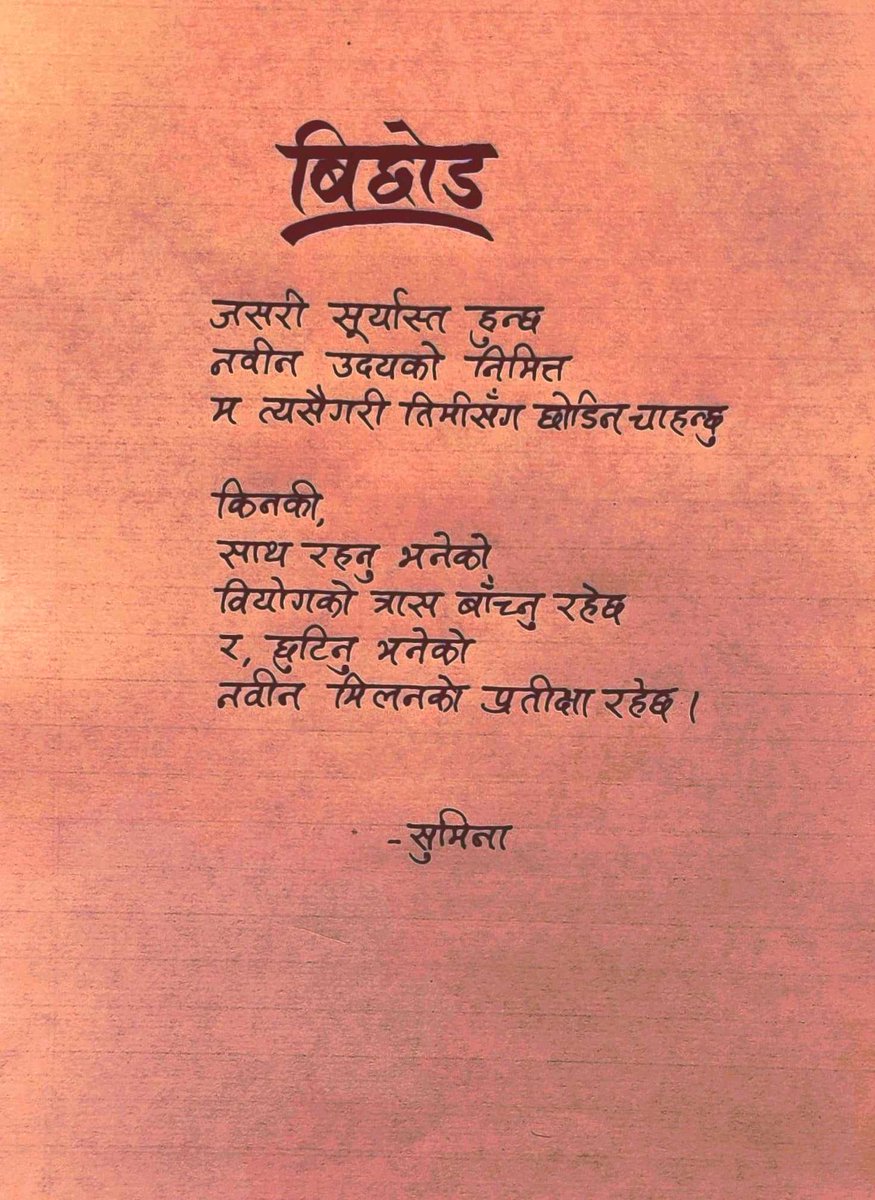 बिछोड
जसरी सूर्यास्त हुन्छ
नवीन उदयको निमित्त
म त्यसैगरी तिमीसँग छोडिन चाहन्छु
किनकी,
साथ रहनु भनेको
वियोगको त्रास बाँच्नु रहेछ
र, छुटिनु भनेको
नवीन मिलनको प्रतीक्षा रहेछ।
-सुमिना